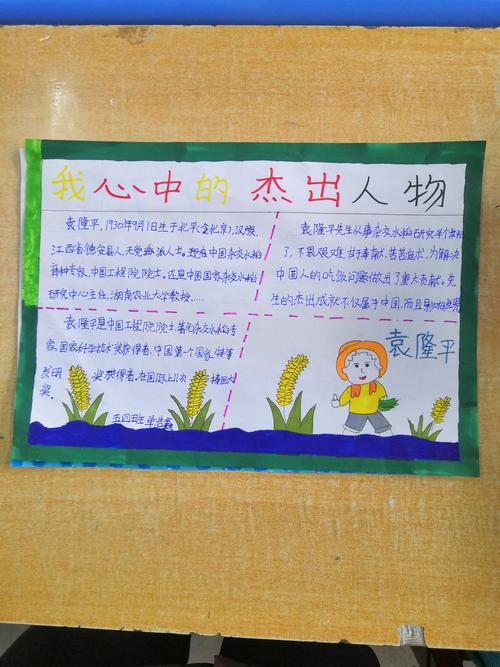 我心中的杰出人物
袁隆平,1930年9月1日生于北平(今北京),汉族,
江西省德安县人,无党派人士。现在中国杂交水稻
育种专家,中国工程院院士。还是中国国家杂交水稻
研究中心主任,湖南农业大学教授……
袁隆平先生从事杂交水稻研究半个世纪
了,不畏艰难,甘于奉献,苦苦追求,为解决
中国人的吃饭问题做出了重大贡献。先
生的杰出成就不仅属于中国,而且影响世界
袁隆平是中国工程院院士,著名杂交水稻专
家,国家科学技术奖获得者,中国第一个国家特等
发明奖获得者。在国际上11次 大
奖。
五四班
袁隆平